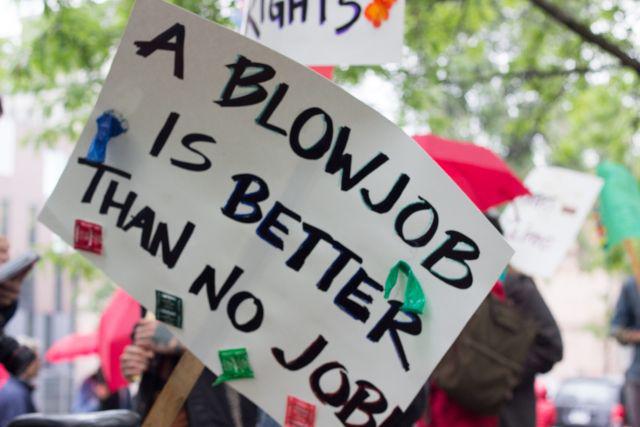 RIGHTS
A BLOWJOB
IS BETTER
THAN NO JOB!